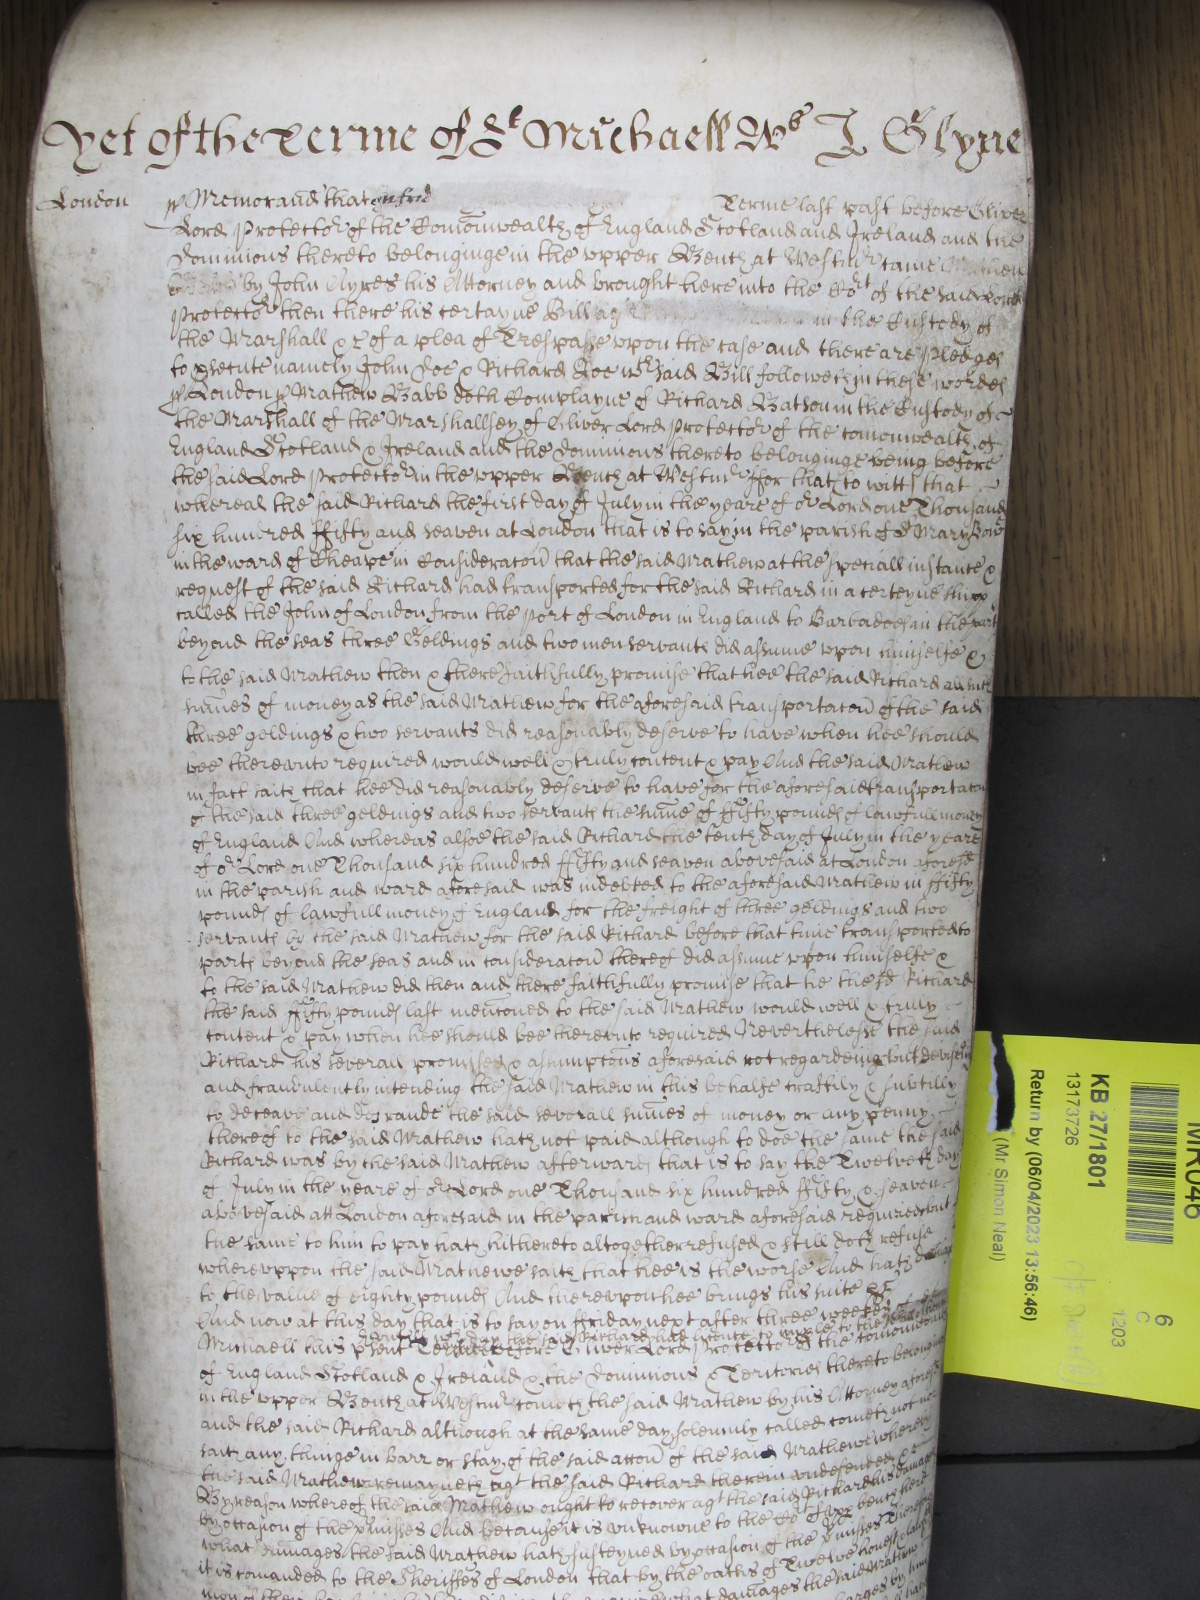 Yet of the Terme of St Michaell Ws J Glyne
London
ss Memorand that Terme last past before Oliver
Lord Protector of the Comonwealth of England Scotland and Ireland and the
Dominions thereto belonginge in the upper Bench at Westmr came Mathew
by John Ayres his Attorney and brought here into the Cort of the said Lord
Protector then there his certayne Bill agt in the Custody of
the Marshall &c of a plea of Trespasse upon the case and there are Pledges
to psecute namely John Doe & Richard Roe wch said Bill followeth in these wordes
ss London ss Mathew Babb doth Complayne of Richard Batson in the Custody of
the Marshall of the Marshallsey of Oliver Lord Protector of the comonwealth of
England Scotland & Ireland and the Dominions thereto belonginge being before
the said Lord Protector in the upper Bench at Westmr ffor that to witt that
whereas the said Richard the first day of July in the yeare of or Lord one Thousand
six hundred ffifty and seaven at London that is to say in the parish of St Mary Bow
in the ward of Cheape in Consideracon that the said Mathew at the speciall instance &
request of the said Richard had transported for the said Richard in a certeyne shipp
called the John of London from the Port of London in England to Barbadoes in the part
beyond the seas three Geldings and two men servants did assume upon himselfe &
to the said Mathew then & there faithfully promise that hee the said Richard all such
sumes of money as the said Mathew for the aforesaid transportacon of the said
three geldings & two servants did reasonably deserve to have when hee should
bee thereunto required would well & truly content & pay And the said Mathew
in fact saith that hee did reasonably deserve to have for the aforesaid transportacon
of the said three geldings and two servants the sume of ffifty pounds of lawfull money
of England And whereas alsoe the said Richard the tenth day of July in the yeare
of or Lord one Thousand six hundred ffifty and seaven abovesaid at London aforesd
in the parish and ward aforesaid was indebted to the aforesaid Mathew in ffifty
pounds of lawfull money of England for the freight of three geldings and two
servants by the said Mathew for the said Richard before that time transported to
parts beyond the seas and in consideracon thereof did assume upon himselfe &
to the said Mathew did then and there faithfully promise that he the sd Richard
the said ffifty pounds last mencioned to the said Mathew would well & truly
content & pay when hee should bee thereunto required Neverthelesse the said
Richard his severall promises & assumptons aforesaid not regardeing but deviseing
and fraudulently intending the said Mathew in this behalfe craftily & subtilly
to deceave and defraude the said severall sumes of money or any penny
thereof to the said Mathew hath not paid although to doe the same the said
Richard was by the said Mathew afterwards that is to say the Twelveth day
of July in the yeare of or Lord one Thousand six hundred ffifty & seaven
abovesaid att London aforesaid in the parish and ward aforesaid required but
the same to him to pay hath hitherto altogether refused & still doth refuse
whereuppon the said Mathewe saith that hee is the worse And hath damage
to the value of eighty pounds And thereupon hee brings his suite &c
And now at this day that is to say on ffriday next after three weekes of
untill wch day the said Richard had licence to imple to the
Michaell this psent Terme before Oliver Lord Protector of the Comonwealth
of England Scotland & Ireland & the Dominions & Territories thereto belonging
in the upper Bench at Westmr cometh the said Mathew by his Attorney aforesd
and the said Richard although at the same day solemnly called cometh not nor
saith any thinge in barr or stay of the said accon of the said Mathewe whereby
the said Mathewe remayneth agt the said Richard therein undefended &c
By reason whereof the said Mathew ought to recover agt the said Richard his damages
by occasion of the pmisses And because it is unknowne to the Cort of upp bench here
what damages the said Mathew hath susteyned by occasion of the pmisses Therefore
it is comanded to the Sheriffes of London that by the oaths of Twelve honest & lawfull
what damages the said Mathew
MR046
6
C
1203
KB 27/1801
13173726
Return by (06/04/2023 13:56:46)
(Mr Simon Neal)